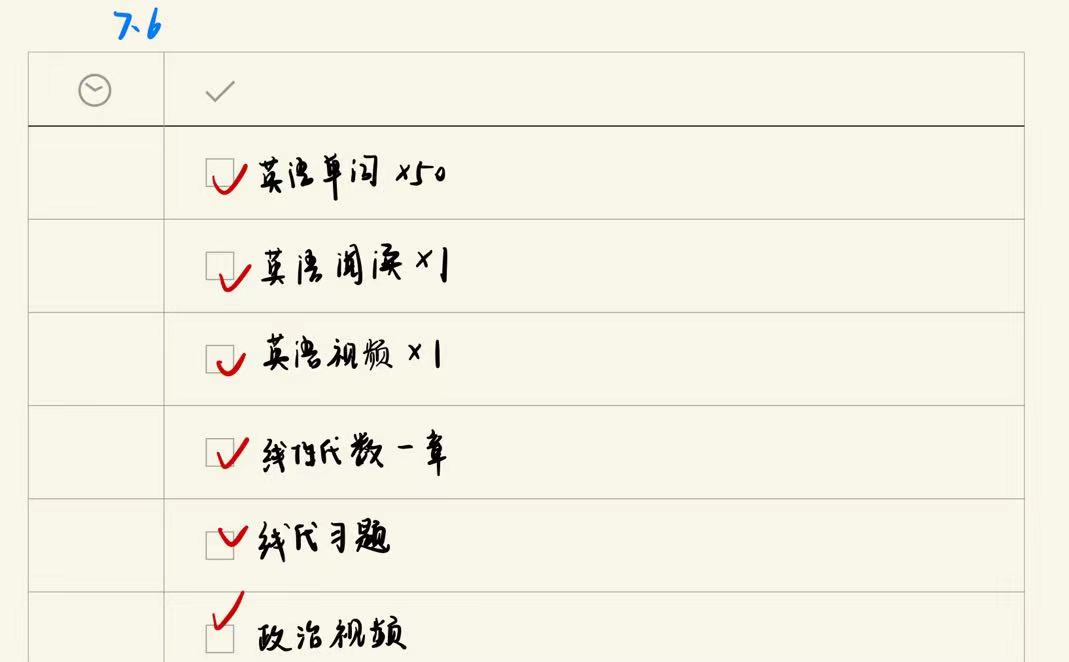 7.6
英语单词 ×50
英语阅读 ×1
英语视频 ×1
线性代数一章
线代习题
政治视频